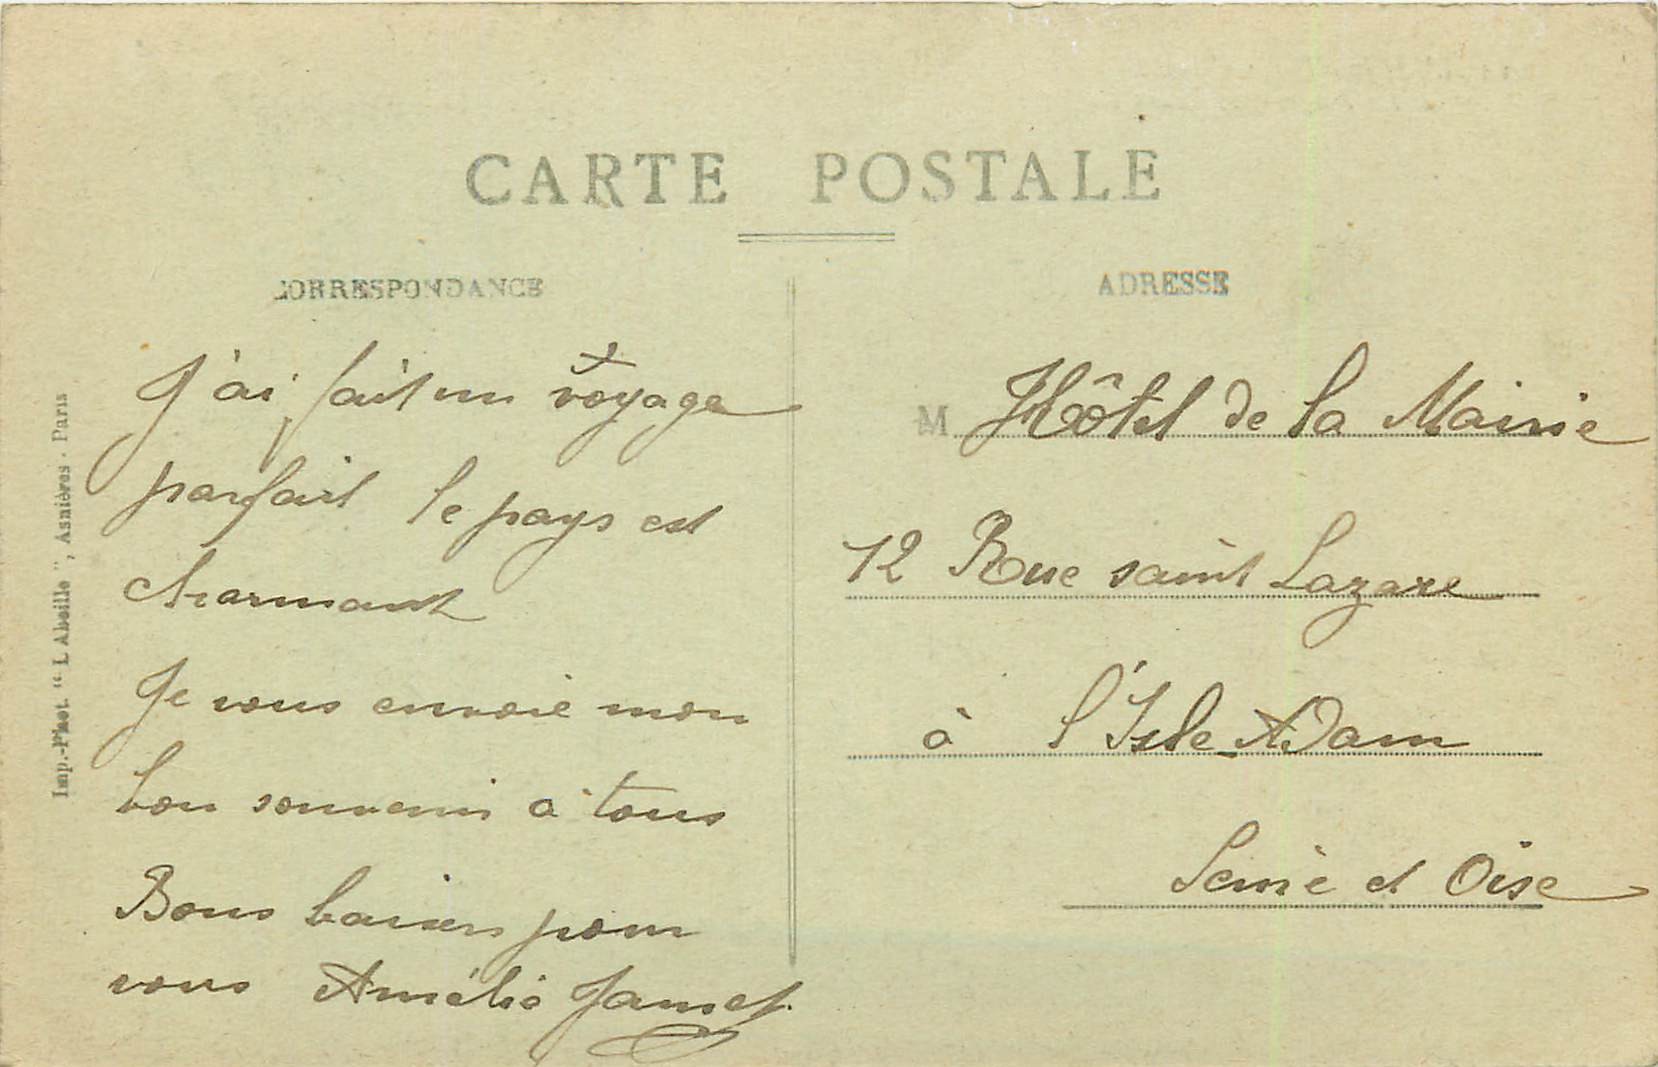 CARTE POSTALE
CORRESPONDANCE
J'ai fait un voyage
parfait le pays est
charmant
Je vous envoie mon
bon souvenir à tous
Bons baisers pour
vous Amélie Jamet
ADRESSE
M Hôtel de la Mairie
12 Rue saint Lazare
à l'Isle Adam
Seine et Oise
Imp.-Phot. “L Abeille”, Asnières - Paris